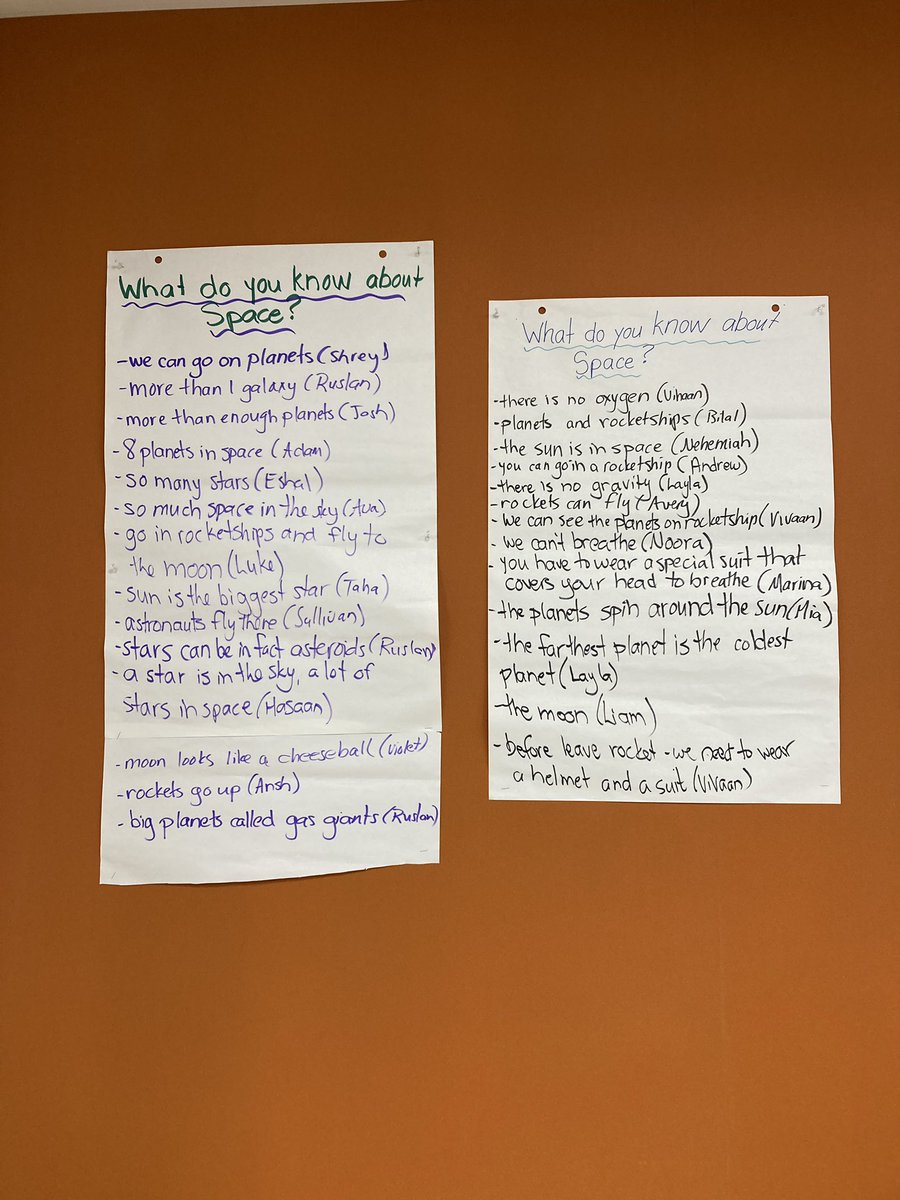 What do you know about
Space?
-we can go on planets (Shrey)
-more than 1 galaxy (Ruslan)
-more than enough planets (Josh)
-8 planets in space (Adam)
-so many stars (Eshal)
-so much space in the sky (Ava)
-go in rocketships and fly to
the moon (Luke)
-sun is the biggest star (Taha)
-astronauts fly there (Sullivan)
-stars can be in fact asteroids (Ruslan)
-a star is in the sky, a lot of
stars in space (Hasaan)
-moon looks like a cheeseball (Violet)
-rockets go up (Ansh)
-big planets called gas giants (Ruslan)
What do you know about
Space?
-there is no oxygen (Vihaan)
-planets and rocketships (Bilal)
-the sun is in space (Nehemiah)
-you can go in a rocketship (Andrew)
-there is no gravity (Layla)
-rockets can fly (Avery)
-we can see the planets on rocketship (Vivaan)
-we can't breathe (Noora)
-you have to wear a special suit that
covers your head to breathe (Marina)
-the planets spin around the sun (Mia)
-the farthest planet is the coldest
planet (Layla)
-the moon (Liam)
-before leave rocket -we need to wear
a helmet and a suit (Vivaan)